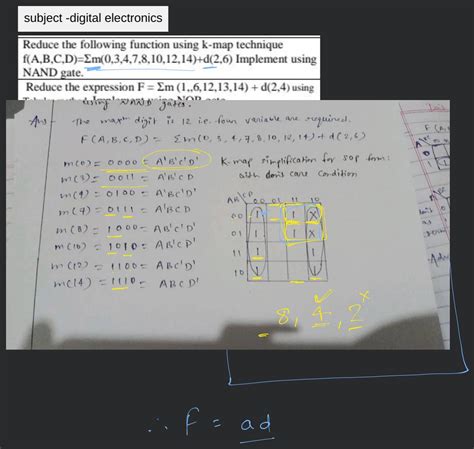 subject -digital electronics
Reduce the following function using k-map technique
f(A,B,C,D)=Σm(0,3,4,7,8,10,12,14)+d(2,6) Implement using
NAND gate.
Reduce the expression F = Σm (1,,6,12,13,14) + d(2,4) using
using NAND gates.
Ans - The max^m digit is 12 i.e. four variable are required.
F(A,B,C,D) = Σm(0,3,4,7,8,10,12,14)+d(2,6)
m(0) = 0000 = A'B'C'D'
m(3) = 0011 = A'B'CD
m(4) = 0100 = A'BC'D'
m(7) = 0111 = A'BCD
m(8) = 1000 = AB'C'D'
m(10) = 1010 = AB'CD'
m(12) = 1100 = ABC'D'
m(14) = 1110 = ABCD'
K-map simplification for SOP form:
with don's care condition
AB CD 00 01 11 10
00 1 1 X
01 1 1 X
11 1 1
10 1 1
8, 4, 2
∴ F = ad